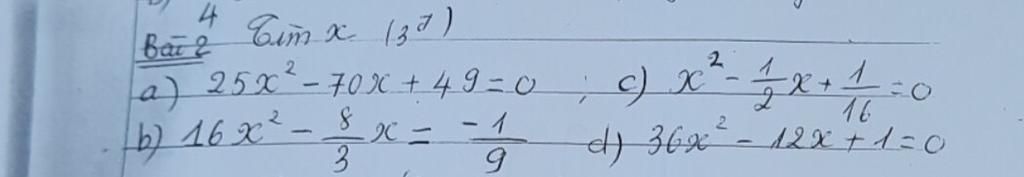 4
Bài 2 Tìm x (3đ)
a) 25x² - 70x + 49 = 0 ; c) x² - 1/2 x + 1/16 = 0
b) 16x² - 8/3 x = -1/9 d) 36x² - 12x + 1 = 0